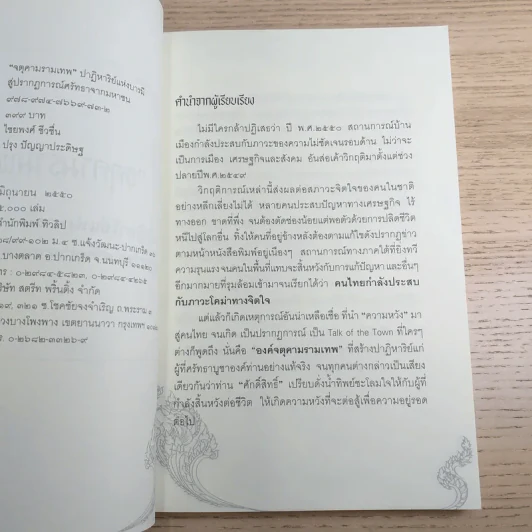 "จตุคามรามเทพ" ปาฏิหาริย์แห่งบารมี
สู่ปรากฏการณ์ศรัทธาจากมหาชน
๙๗๘-๙๗๔-๗๖๖๙-๗๓-๒
๓๙๙ บาท
ไชยพงศ์ ชีวชื่น
ปรุง ปัญญาประดิษฐ
มิถุนายน ๒๕๕๐
๕,๐๐๐ เล่ม
สำนักพิมพ์ ทิวลิป
๖๘/๙๙-๑๐๒ ม ๔ ซ.แจ้งวัฒนะ-ปากเกร็ด
บางตลาด อ.ปากเกร็ด จ นนทบุรี ๑๑๑๒๐
โทร : ๐-๒๙๘๔-๕๘๒๓, ๐-๒๙๘๔
บริษัท สตรีท พริ้นติ้ง จำกัด
๓๑๙, ๓๒๑ ซ.โชคชัยจงจำเริญ ถ.พระราม
แขวงบางโพงพาง เขตยานนาวา กรุงเทพฯ
๐-๒๖๘๒-๓๓๒๖-๙
คำนำจากผู้เรียบเรียง
ไม่มีใครกล้าปฏิเสธว่า ปี พ.ศ.๒๕๕๐ สถานการณ์บ้าน
เมืองกำลังประสบกับภาวะของความไม่ชัดเจนรอบด้าน ไม่ว่าจะ
เป็นการเมือง เศรษฐกิจและสังคม อันส่อเค้าวิกฤติมาตั้งแต่ช่วง
ปลายปีพ.ศ.๒๕๔๙
วิกฤติการณ์เหล่านี้ส่งผลต่อสภาวะจิตใจของคนในชาติ
อย่างหลีกเลี่ยงไม่ได้ หลายคนประสบปัญหาทางเศรษฐกิจ ไร้
ทางออก ขาดที่พึ่ง จนต้องตัดช่องน้อยแต่พอตัวด้วยการปลิดชีวิต
หนีไปสู่โลกอื่น ทิ้งให้คนที่อยู่ข้างหลังต้องตามแก้ไขดังปรากฏข่าว
ตามหน้าหนังสือพิมพ์อยู่เนืองๆ สถานการณ์ทางภาคใต้ที่ยิ่งทวี
ความรุนแรง จนคนในพื้นที่แทบจะสิ้นหวังกับการแก้ปัญหา และอื่นๆ
อีกมากมายที่รุมล้อมเข้ามาจนเรียกได้ว่า คนไทยกำลังประสบ
กับภาวะโคม่าทางจิตใจ
แต่แล้วก็เกิดเหตุการณ์อันน่าเหลือเชื่อ ที่นำ "ความหวัง" มา
สู่คนไทย จนเกิด เป็นปรากฏการณ์ เป็น Talk of the Town ที่ใครๆ
ต่างก็พูดถึง นั่นคือ "องค์จตุคามรามเทพ" ที่สร้างปาฏิหาริย์แก่
ผู้ที่ศรัทธาบูชาองค์ท่านอย่างแท้จริง จนทุกคนต่างกล่าวเป็นเสียง
เดียวกันว่าท่าน "ศักดิ์สิทธิ์" เปรียบดั่งน้ำทิพย์ชะโลมใจให้กับผู้ที่
กำลังสิ้นหวังต่อชีวิต ให้เกิดความหวังที่จะต่อสู้เพื่อความอยู่รอด
ต่อไป